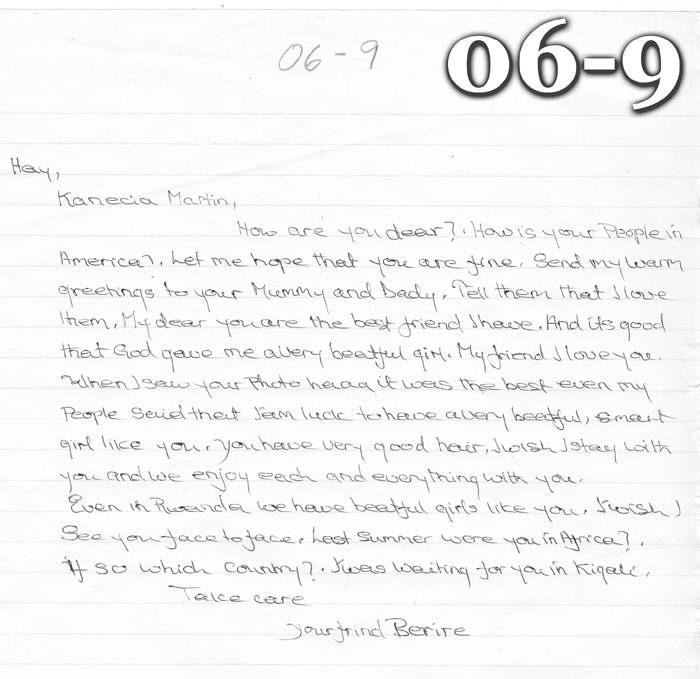 06-9
06-9
Hay,
Kanecia Martin,
How are you dear?. How is your People in
America?. Let me hope that you are fine. Send my warm
greetings to your Mummy and Dady. Tell them that I love
them. My dear you are the best friend I have. And its good
that God gave me a very beatful girl. My friend I love you.
When I saw your Photo haaa it was the best even my
People Seid that Iam luck to have a very beatful, smart
girl like you. You have very good hair, I wish I stay with
you and we enjoy each and everything with you.
Even in Rwanda we have beatful girls like you. I wish I
See you face to face. Last Summer were you in Africa?.
If so which country?. I was waiting for you in Kigali.
Take care
your frind Berire